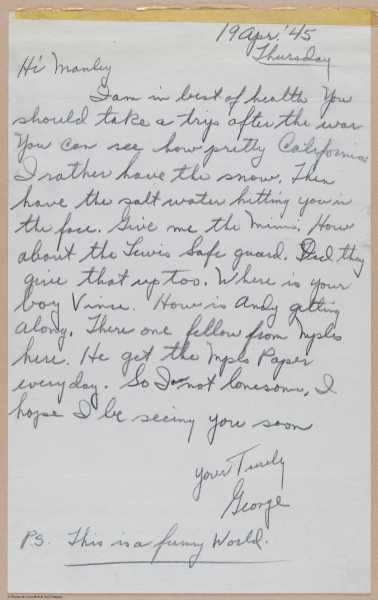 19 Apr. '45
Thursday
Hi Manley
I am in best of health You
should take a trip after the war
You can see how pretty California
I rather have the snow. Then
have the salt water hitting you in
the face. Give me the Minn. How
about the Lewis Safe guard. Did they
give that up too. Where is your
boy Vince. How is Andy getting
along. There one fellow from Mpls
here. He get the Mpls Paper
everyday. So I am not lonesome, I
hope I be seeing you soon
Yours Turely
George
P.S. This is a funny World.